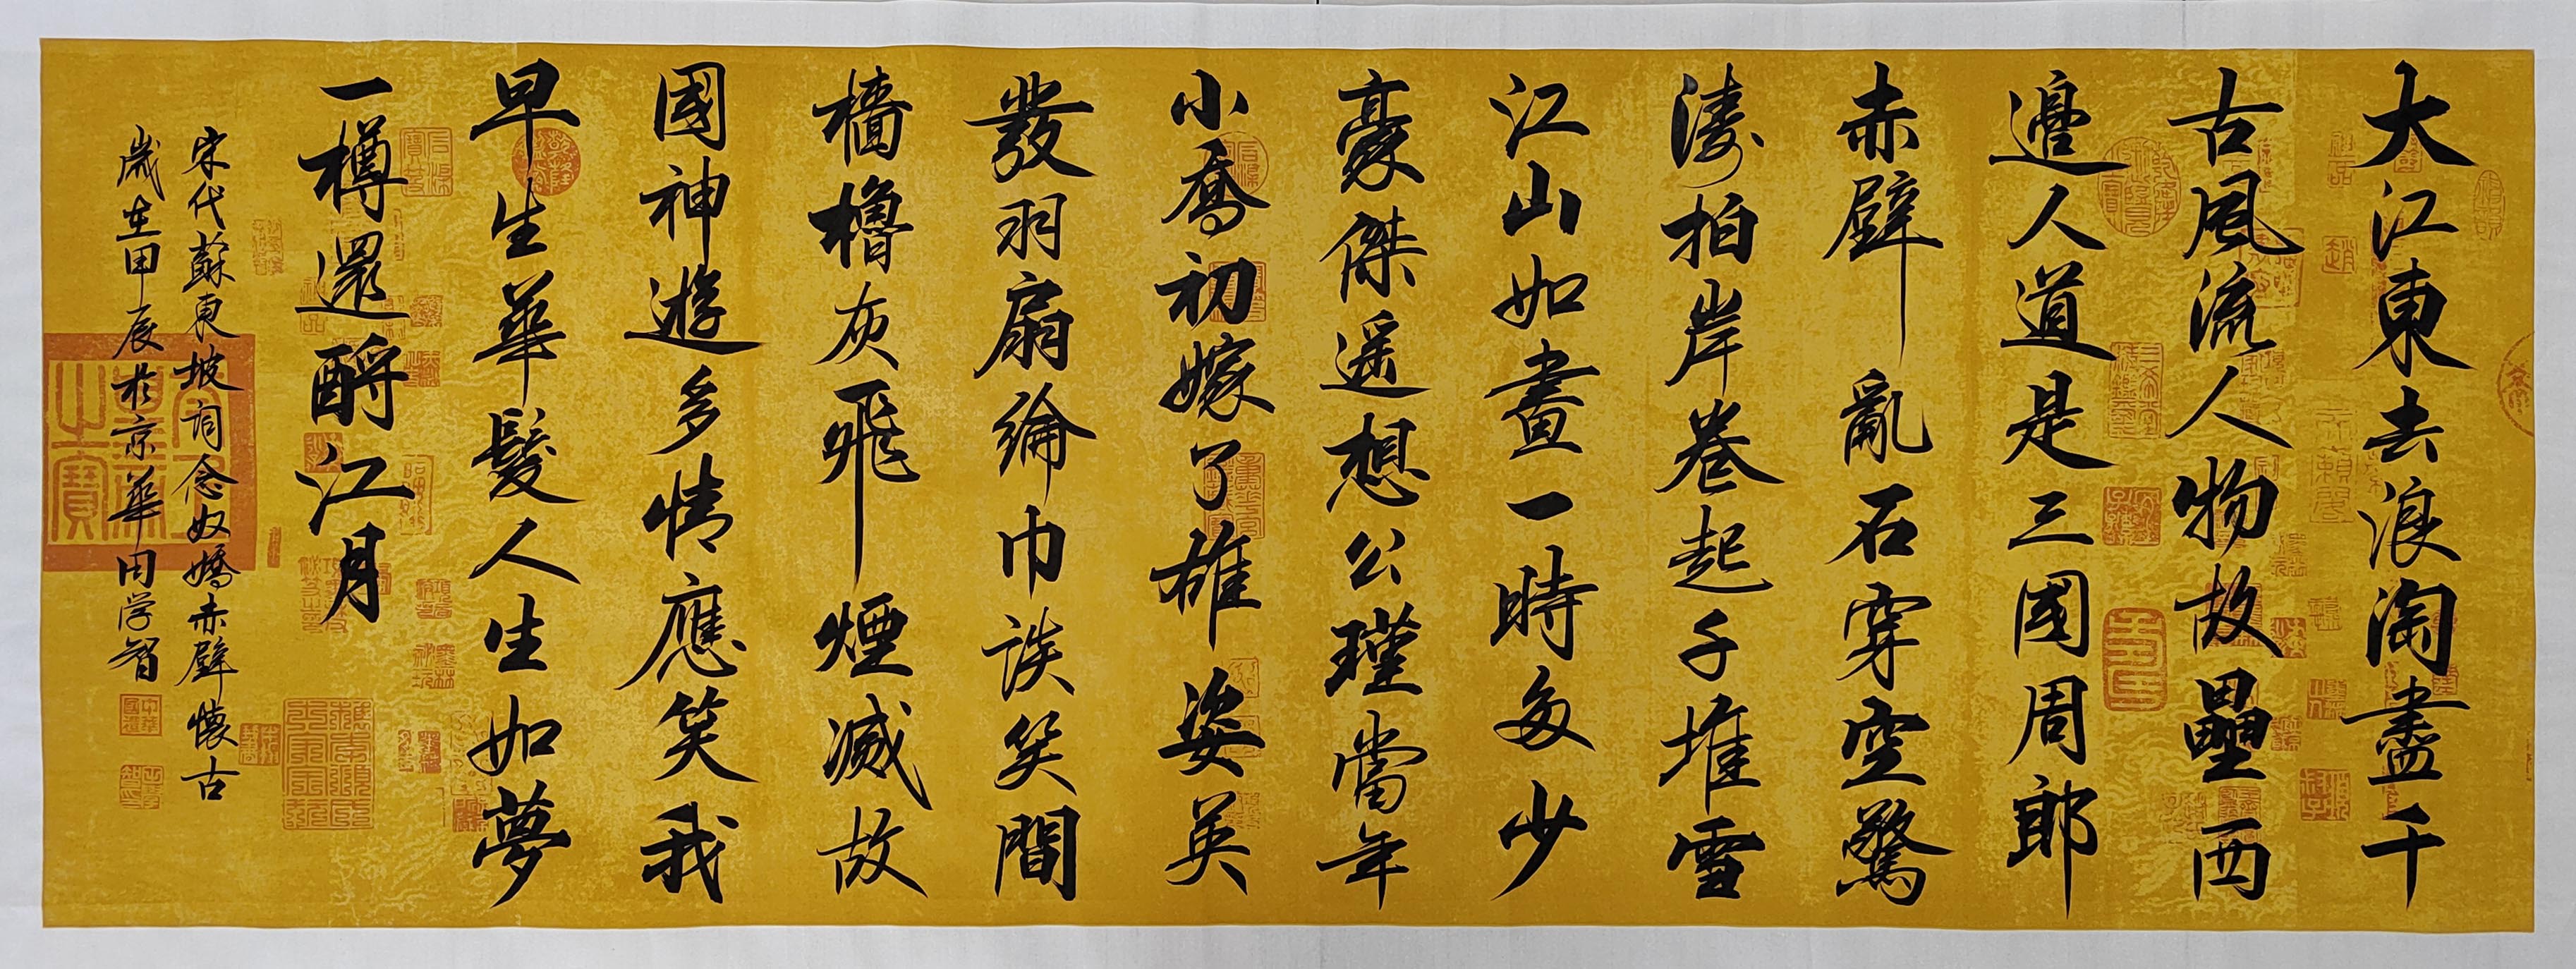 大江東去浪淘盡千
古風流人物故壘西
邊人道是三國周郎
赤壁亂石穿空驚
濤拍岸卷起千堆雪
江山如畫一時多少
豪傑遥想公瑾當年
小喬初嫁了雄姿英
發羽扇綸巾談笑間
檣櫓灰飛煙滅故
國神遊多情應笑我
早生華髮人生如夢
一樽還酹江月
宋代蘇東坡詞念奴嬌赤壁懷古
歲在甲辰於京華田学智